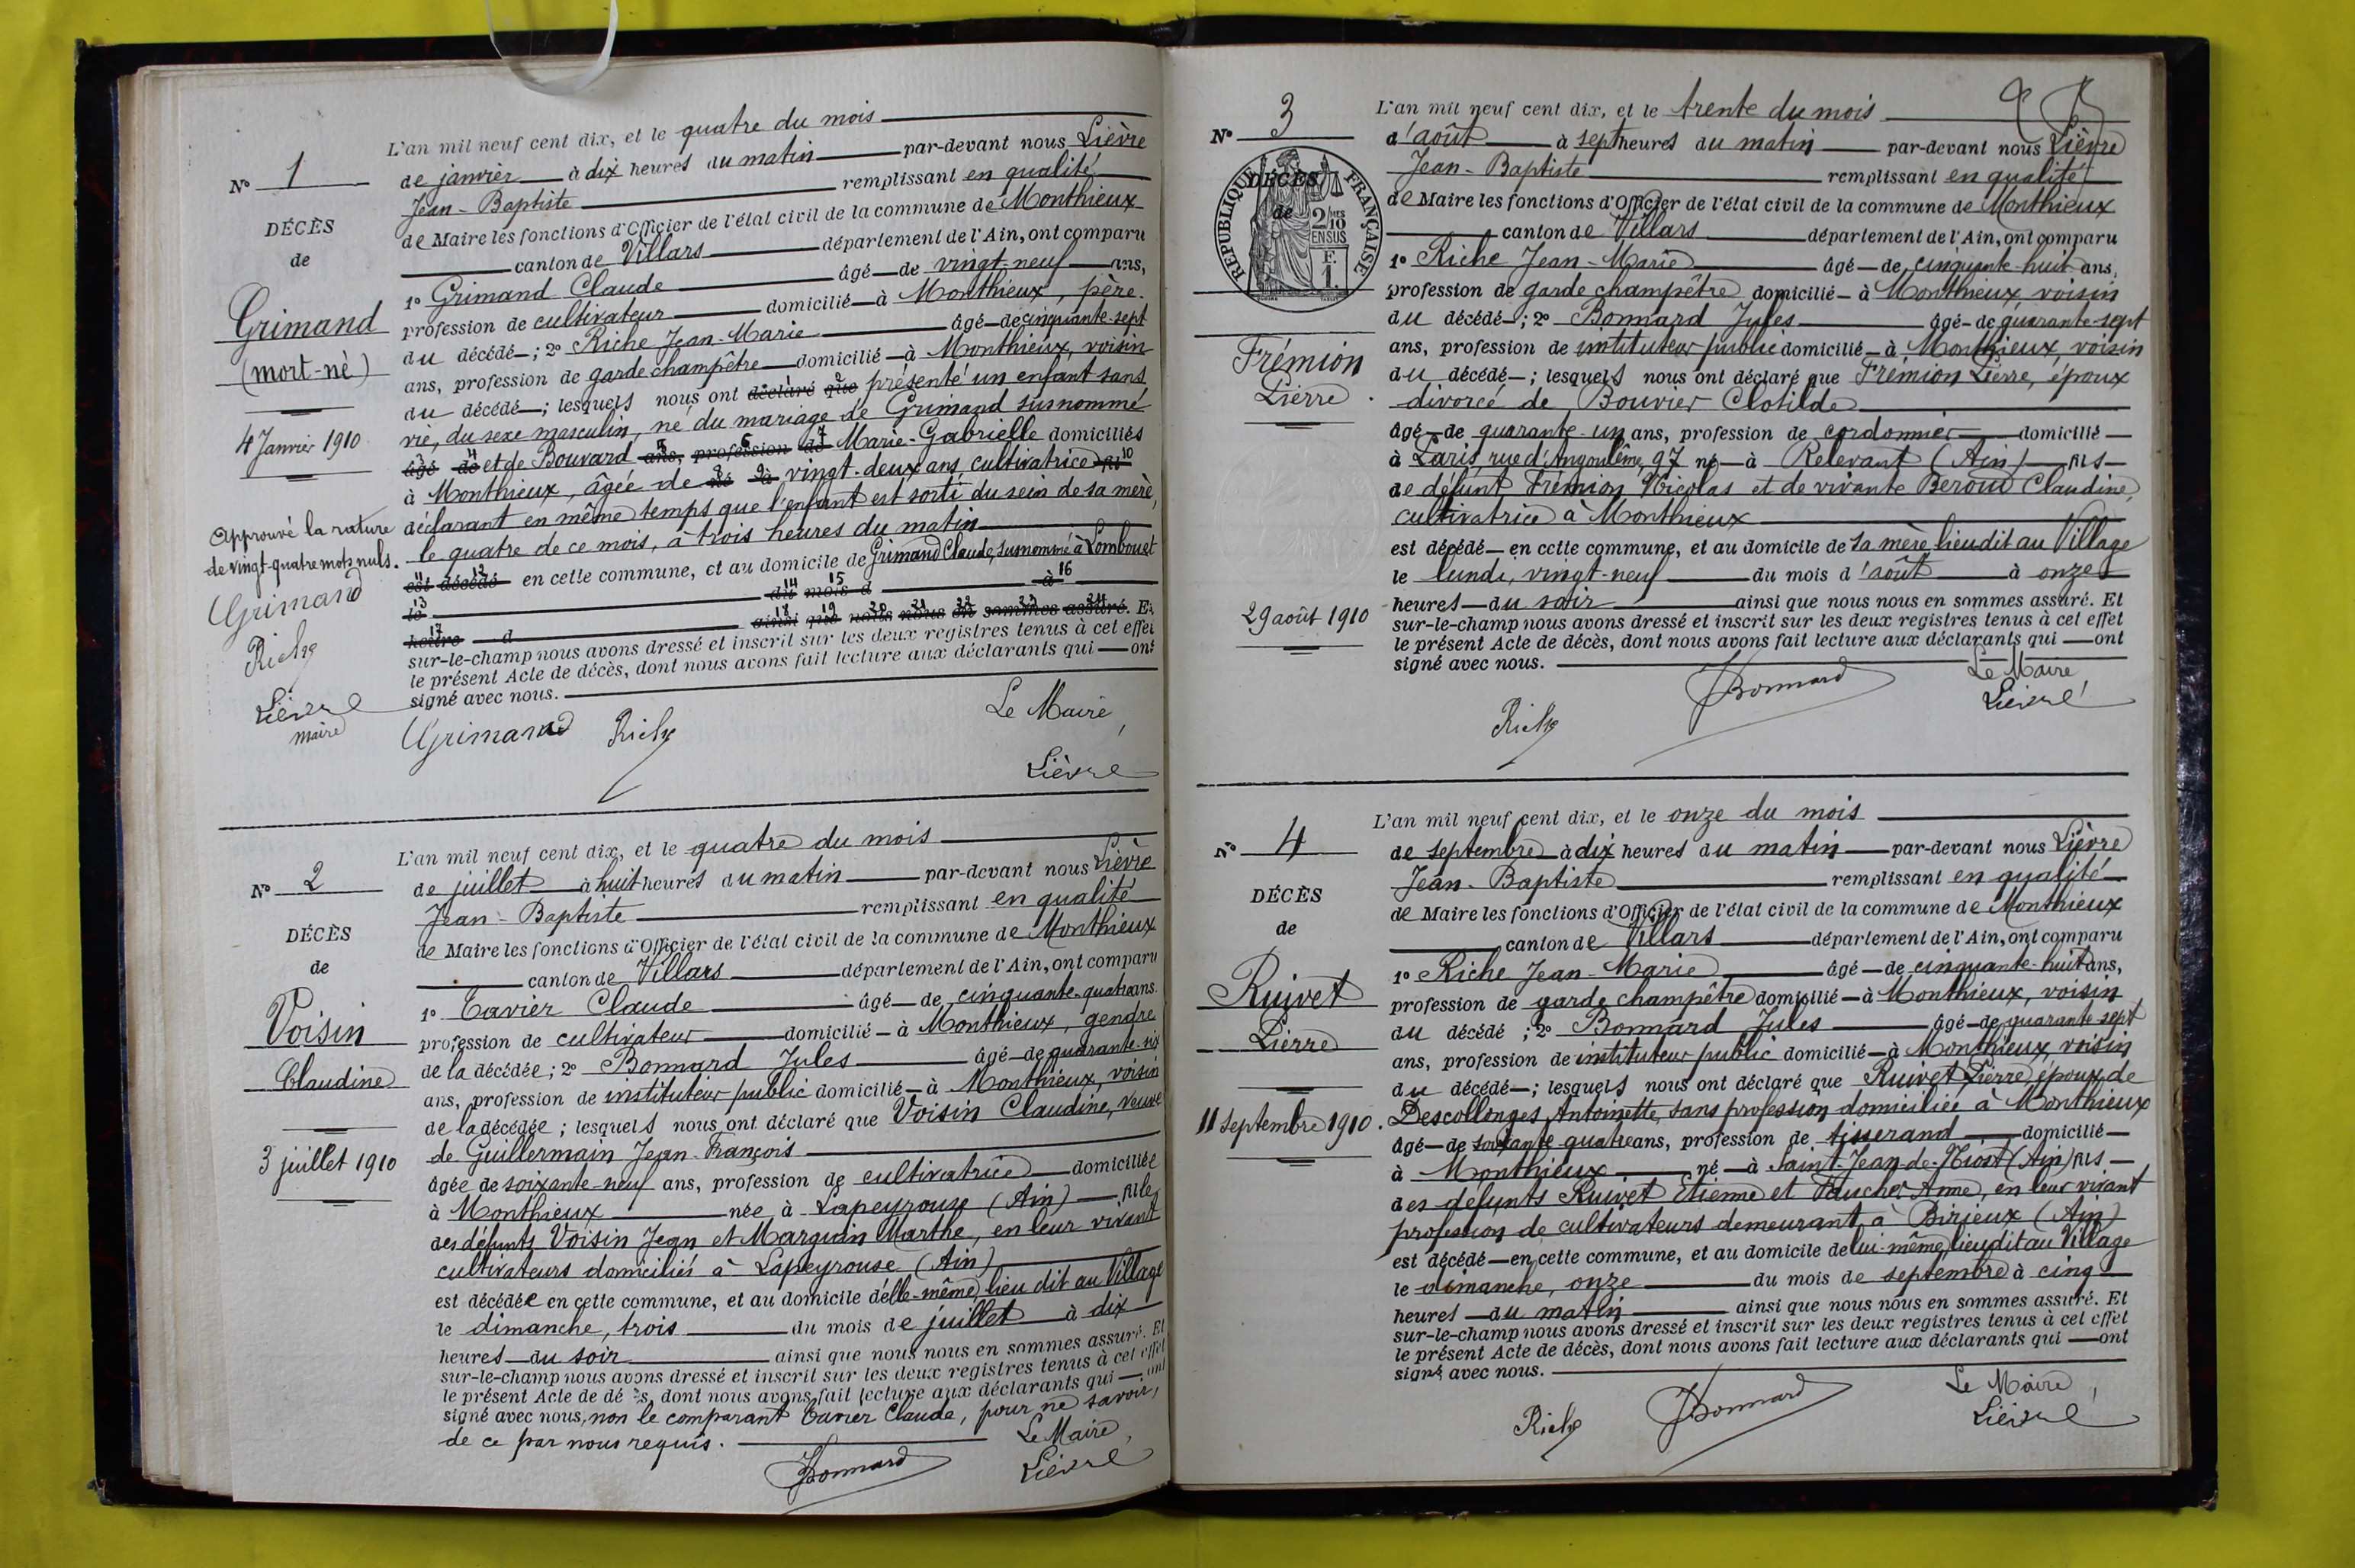 L'an mil neuf cent dix, et le quatre du mois
N° 1
de janvier à dix heures du matin par-devant nous Lièvre
Jean-Baptiste remplissant en qualité
DÉCÈS
de Maire les fonctions d'Officier de l'état civil de la commune de Monthieux
de
canton de Villars département de l'Ain, ont comparu
1° Grimand Claude âgé de vingt-neuf ans,
Grimand
profession de cultivateur domicilié à Monthieux, père
(mort-né)
du décédé; 2° Riche Jean-Marie âgé de cinquante-sept
ans, profession de garde champêtre domicilié à Monthieux, voisin
du décédé; lesquels nous ont déclaré que présenté un enfant sans
4 Janvier 1910
vie, du sexe masculin, né du mariage de Grimand susnommé
âgé de et de Bouvard ans, profession de Marie-Gabrielle domiciliés
à Monthieux, âgée de né à vingt-deux ans cultivatrice
déclarant en même temps que l'enfant est sorti du sein de sa mère,
Approuvé la rature
de vingt-quatre mots nuls.
le quatre de ce mois, à trois heures du matin
est décédé en cette commune, et au domicile de Grimand Claude, susnommé à Lombouet
le du mois d à
heure d ainsi que nous nous en sommes assuré. Et
sur-le-champ nous avons dressé et inscrit sur les deux registres tenus à cet effet
le présent Acte de décès, dont nous avons fait lecture aux déclarants qui ont
signé avec nous.
Grimand
Riche
Lièvre
maire
Grimand Riche Le Maire,
Lièvre
L'an mil neuf cent dix, et le quatre du mois
N° 2
de juillet à huit heures du matin par-devant nous Lièvre
Jean-Baptiste remplissant en qualité
DÉCÈS
de Maire les fonctions d'Officier de l'état civil de la commune de Monthieux
de
canton de Villars département de l'Ain, ont comparu
1° Cavier Claude âgé de cinquante-quatre ans
Voisin
profession de cultivateur domicilié à Monthieux, gendre
Claudine
de la décédée; 2° Bonnard Jules âgé de quarante-six
ans, profession de instituteur public domicilié à Monthieux, voisin
de la décédée; lesquels nous ont déclaré que Voisin Claudine, veuve
3 juillet 1910
de Guillermain Jean-François
âgée de soixante-neuf ans, profession de cultivatrice domiciliée
à Monthieux née à Lapeyrouse (Ain) fille
des défunts Voisin Jean et Marguin Marthe, en leur vivant
cultivateurs domiciliés à Lapeyrouse (Ain)
est décédée en cette commune, et au domicile d'elle-même, lieu dit au Village
le dimanche, trois du mois de juillet à dix
heures du soir ainsi que nous nous en sommes assuré. Et
sur-le-champ nous avons dressé et inscrit sur les deux registres tenus à cet effet
le présent Acte de décès, dont nous avons fait lecture aux déclarants qui ont
signé avec nous, non le comparant Cavier Claude, pour ne savoir,
de ce par nous requis. Le Maire,
Bonnard Lièvre
L'an mil neuf cent dix, et le trente du mois
N° 3
d'août à sept heures du matin par-devant nous Lièvre
Jean-Baptiste remplissant en qualité
DÉCÈS
de
RÉPUBLIQUE FRANÇAISE
2/10 EN SUS
F. 1.
de Maire les fonctions d'Officier de l'état civil de la commune de Monthieux
canton de Villars département de l'Ain, ont comparu
1° Riche Jean-Marie âgé de cinquante-huit ans,
profession de garde champêtre domicilié à Monthieux, voisin
du décédé; 2° Bonnard Jules âgé de quarante-sept
ans, profession de instituteur public domicilié à Monthieux, voisin
Frémion
Pierre
du décédé; lesquels nous ont déclaré que Frémion Pierre, époux
divorcé de Bouvier Clotilde
âgé de quarante-un ans, profession de cordonnier domicilié
à Paris, rue d'Angoulême, 97 né à Relevant (Ain) fils
de défunt Frémion Nicolas et de vivante Beroud Claudine,
cultivatrice à Monthieux
est décédé en cette commune, et au domicile de sa mère lieu dit au Village
le lundi, vingt-neuf du mois d'août à onze
29 août 1910
heures du soir ainsi que nous nous en sommes assuré. Et
sur-le-champ nous avons dressé et inscrit sur les deux registres tenus à cet effet
le présent Acte de décès, dont nous avons fait lecture aux déclarants qui ont
signé avec nous.
Le Maire
Riche Bonnard Lièvre
L'an mil neuf cent dix, et le onze du mois
N° 4
de septembre à dix heures du matin par-devant nous Lièvre
Jean-Baptiste remplissant en qualité
DÉCÈS
de Maire les fonctions d'Officier de l'état civil de la commune de Monthieux
de
canton de Villars département de l'Ain, ont comparu
1° Riche Jean-Marie âgé de cinquante-huit ans,
Ruivet
profession de garde champêtre domicilié à Monthieux, voisin
Pierre
du décédé; 2° Bonnard Jules âgé de quarante-sept
ans, profession de instituteur public domicilié à Monthieux, voisin
du décédé; lesquels nous ont déclaré que Ruivet Pierre, époux de
11 septembre 1910.
Descollonges Antoinette, sans profession domiciliée à Monthieux
âgé de soixante-quatre ans, profession de tisserand domicilié
à Monthieux né à Saint-Jean-de-Niost (Ain) fils
des défunts Ruivet Etienne et Faucher Anne, en leur vivant
profession de cultivateurs demeurant à Birieux (Ain)
est décédé en cette commune, et au domicile de lui-même, lieu dit au Village
le dimanche, onze du mois de septembre à cinq
heures du matin ainsi que nous nous en sommes assuré. Et
sur-le-champ nous avons dressé et inscrit sur les deux registres tenus à cet effet
le présent Acte de décès, dont nous avons fait lecture aux déclarants qui ont
signé avec nous.
Le Maire,
Riche Bonnard Lièvre